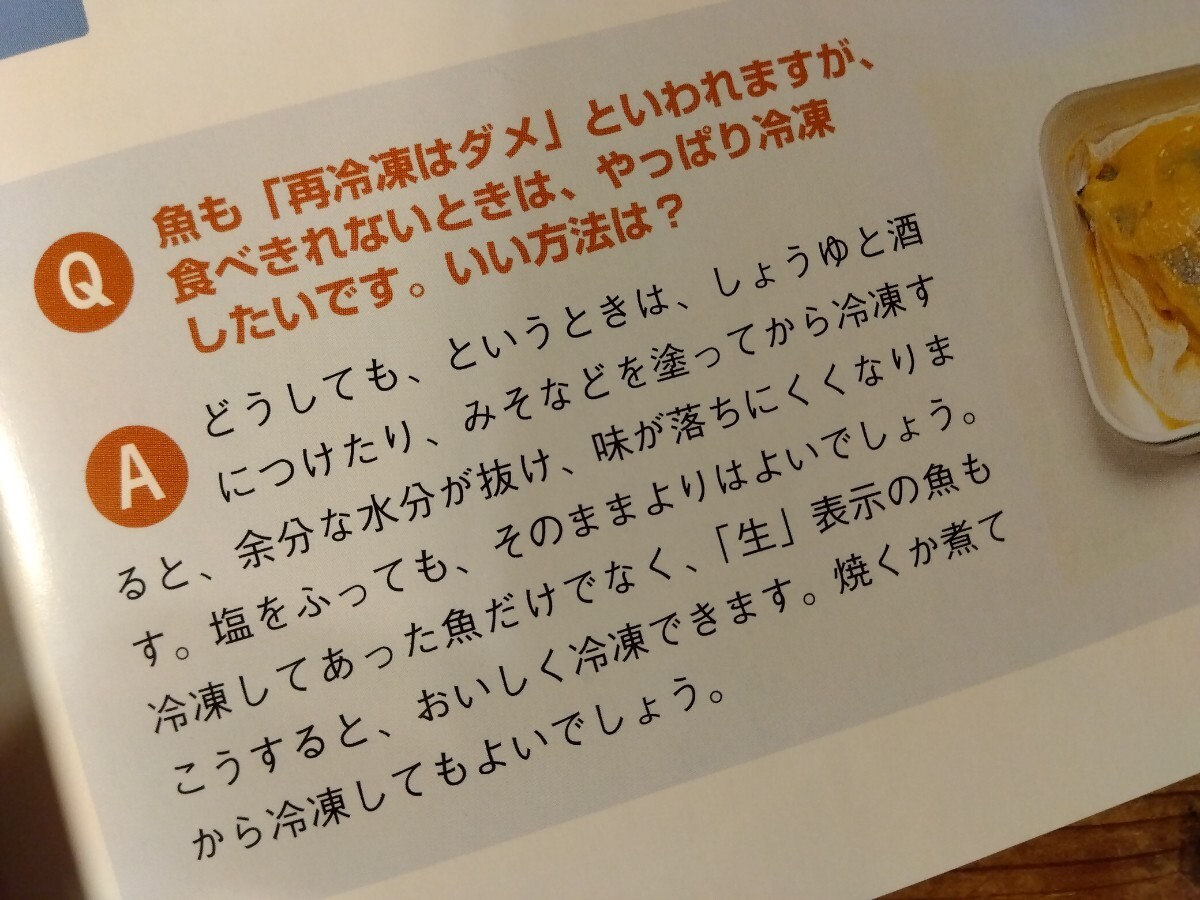 Q
魚も「再冷凍はダメ」といわれますが、
食べきれないときは、やっぱり冷凍
したいです。いい方法は？
A
どうしても、というときは、しょうゆと酒
につけたり、みそなどを塗ってから冷凍す
ると、余分な水分が抜け、味が落ちにくくなりま
す。塩をふっても、そのままよりはよいでしょう。
冷凍してあった魚だけでなく、「生」表示の魚も
こうすると、おいしく冷凍できます。焼くか煮て
から冷凍してもよいでしょう。